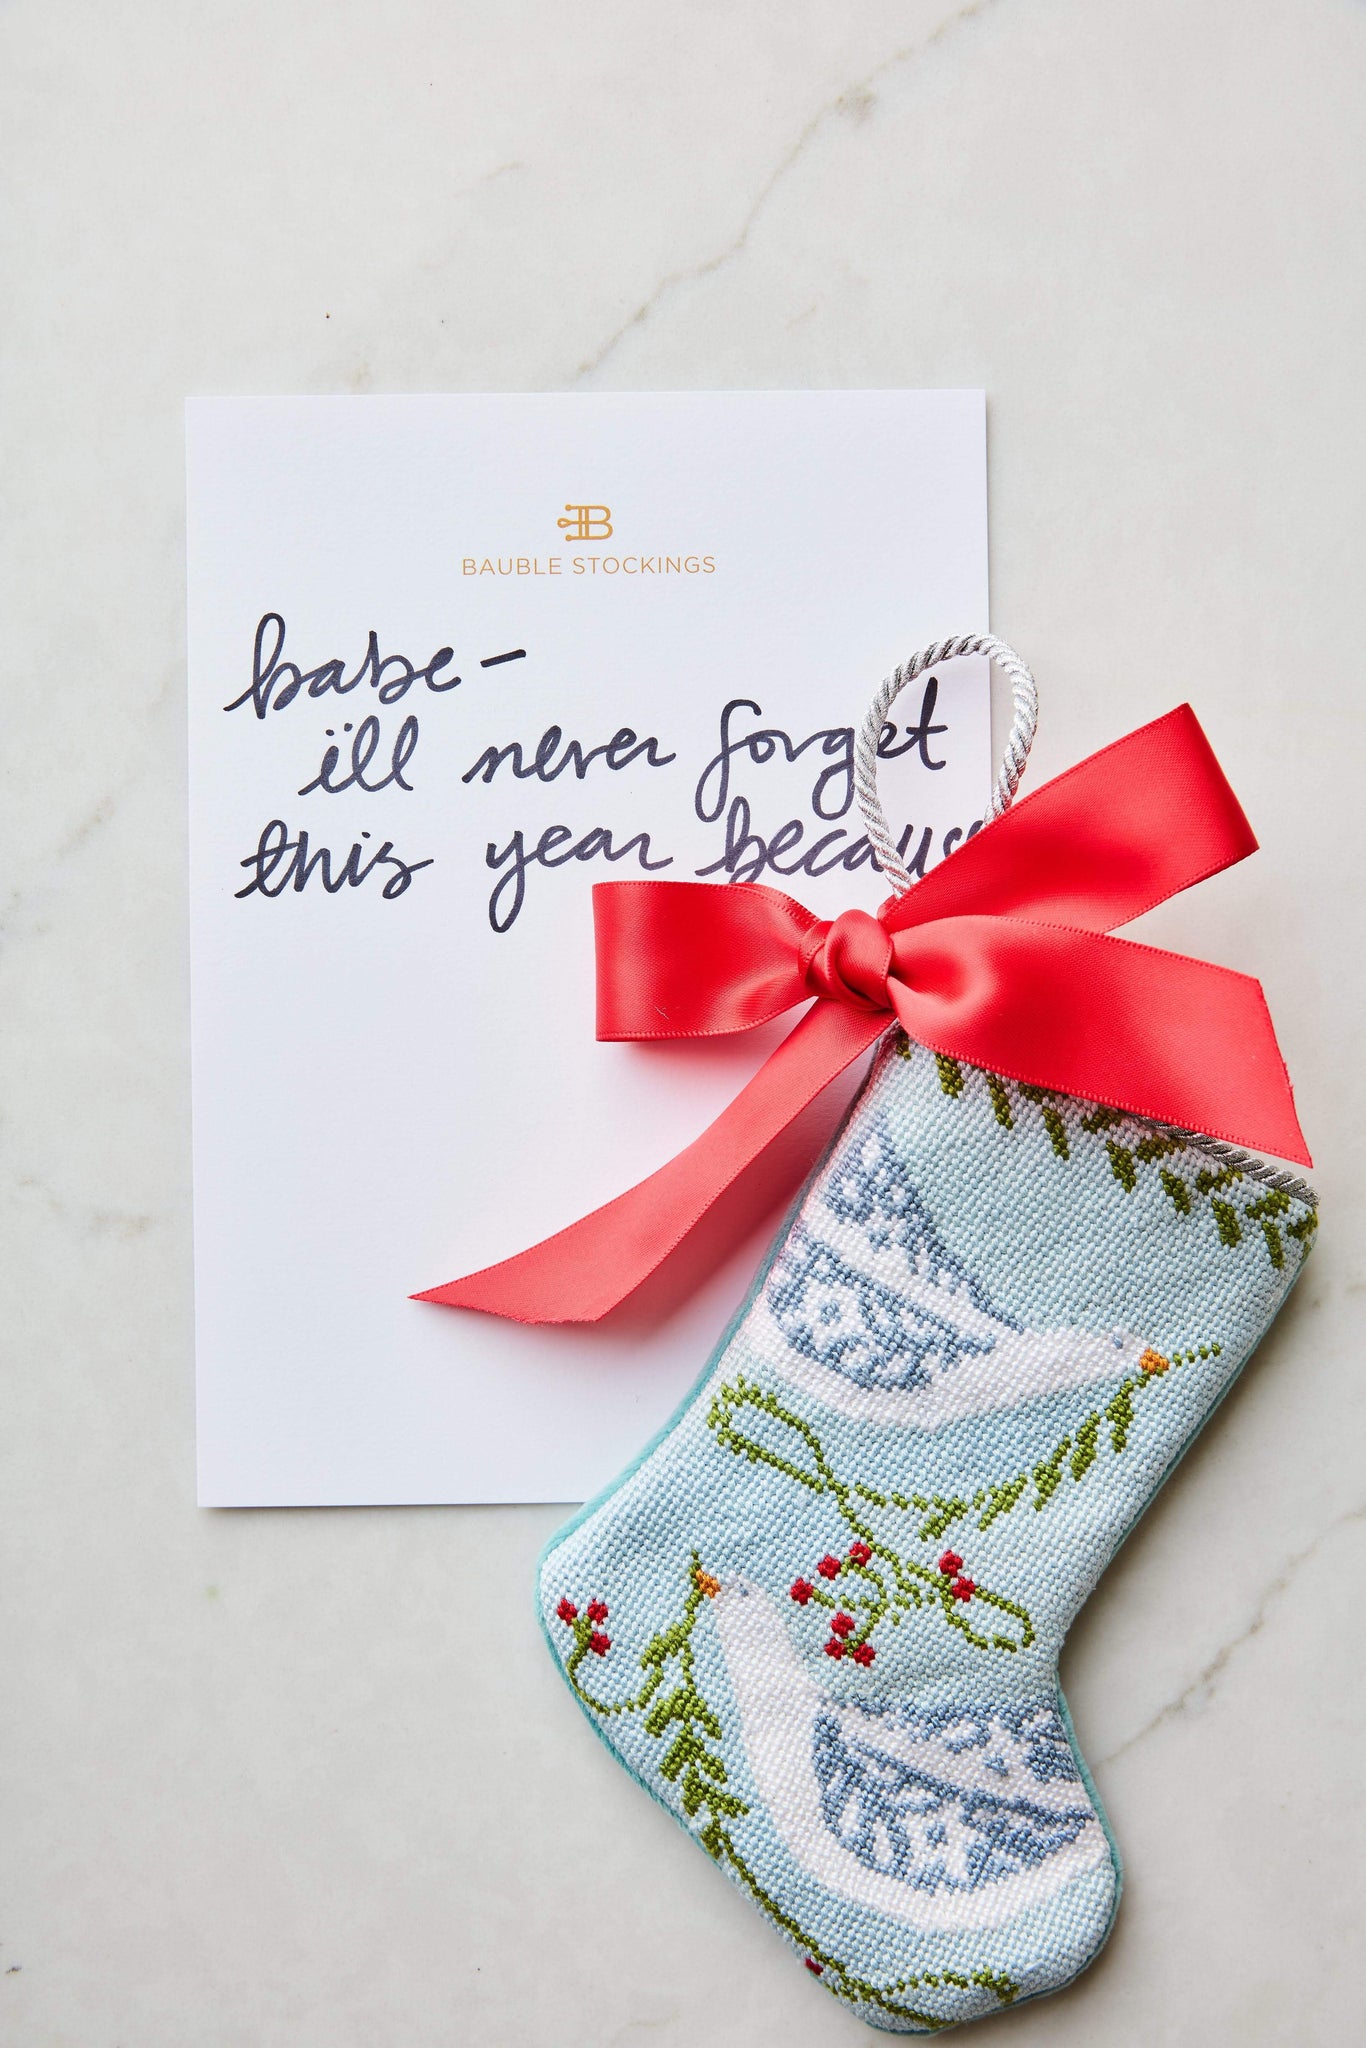 BAUBLE STOCKINGS
babe-
ïll never forget
this year because